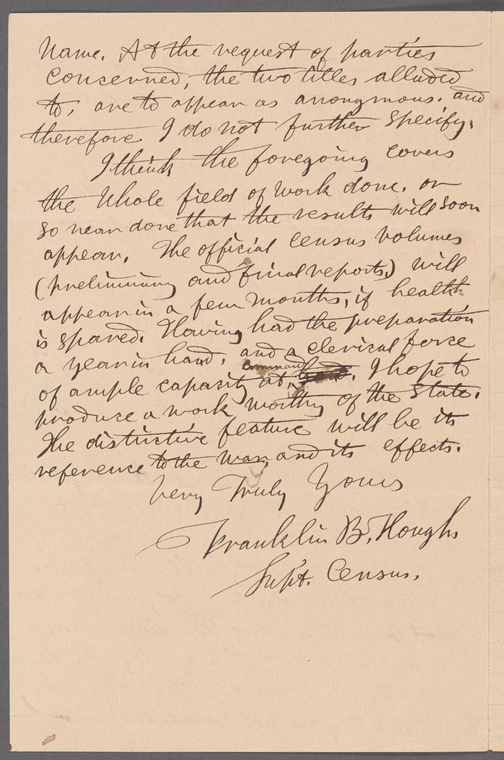 Name. At the request of parties
concerned, the two titles alluded
to, are to appear as anonymous, and
therefore I do not further specify.
I think the foregoing covers
the whole field of work done, or
so near done that the results will soon
appear. The official census volumes
(preliminary and final reports,) will
appear in a few months, if health
is spared. Having had the preparation
a year in hand, and a clerical force
command
of ample capacity at, I hope to
produce a work worthy of the State.
The distinctive feature will be its
reference to the war, and its effects.
Very Truly Yours
Franklin B. Hough
Supt. Census.